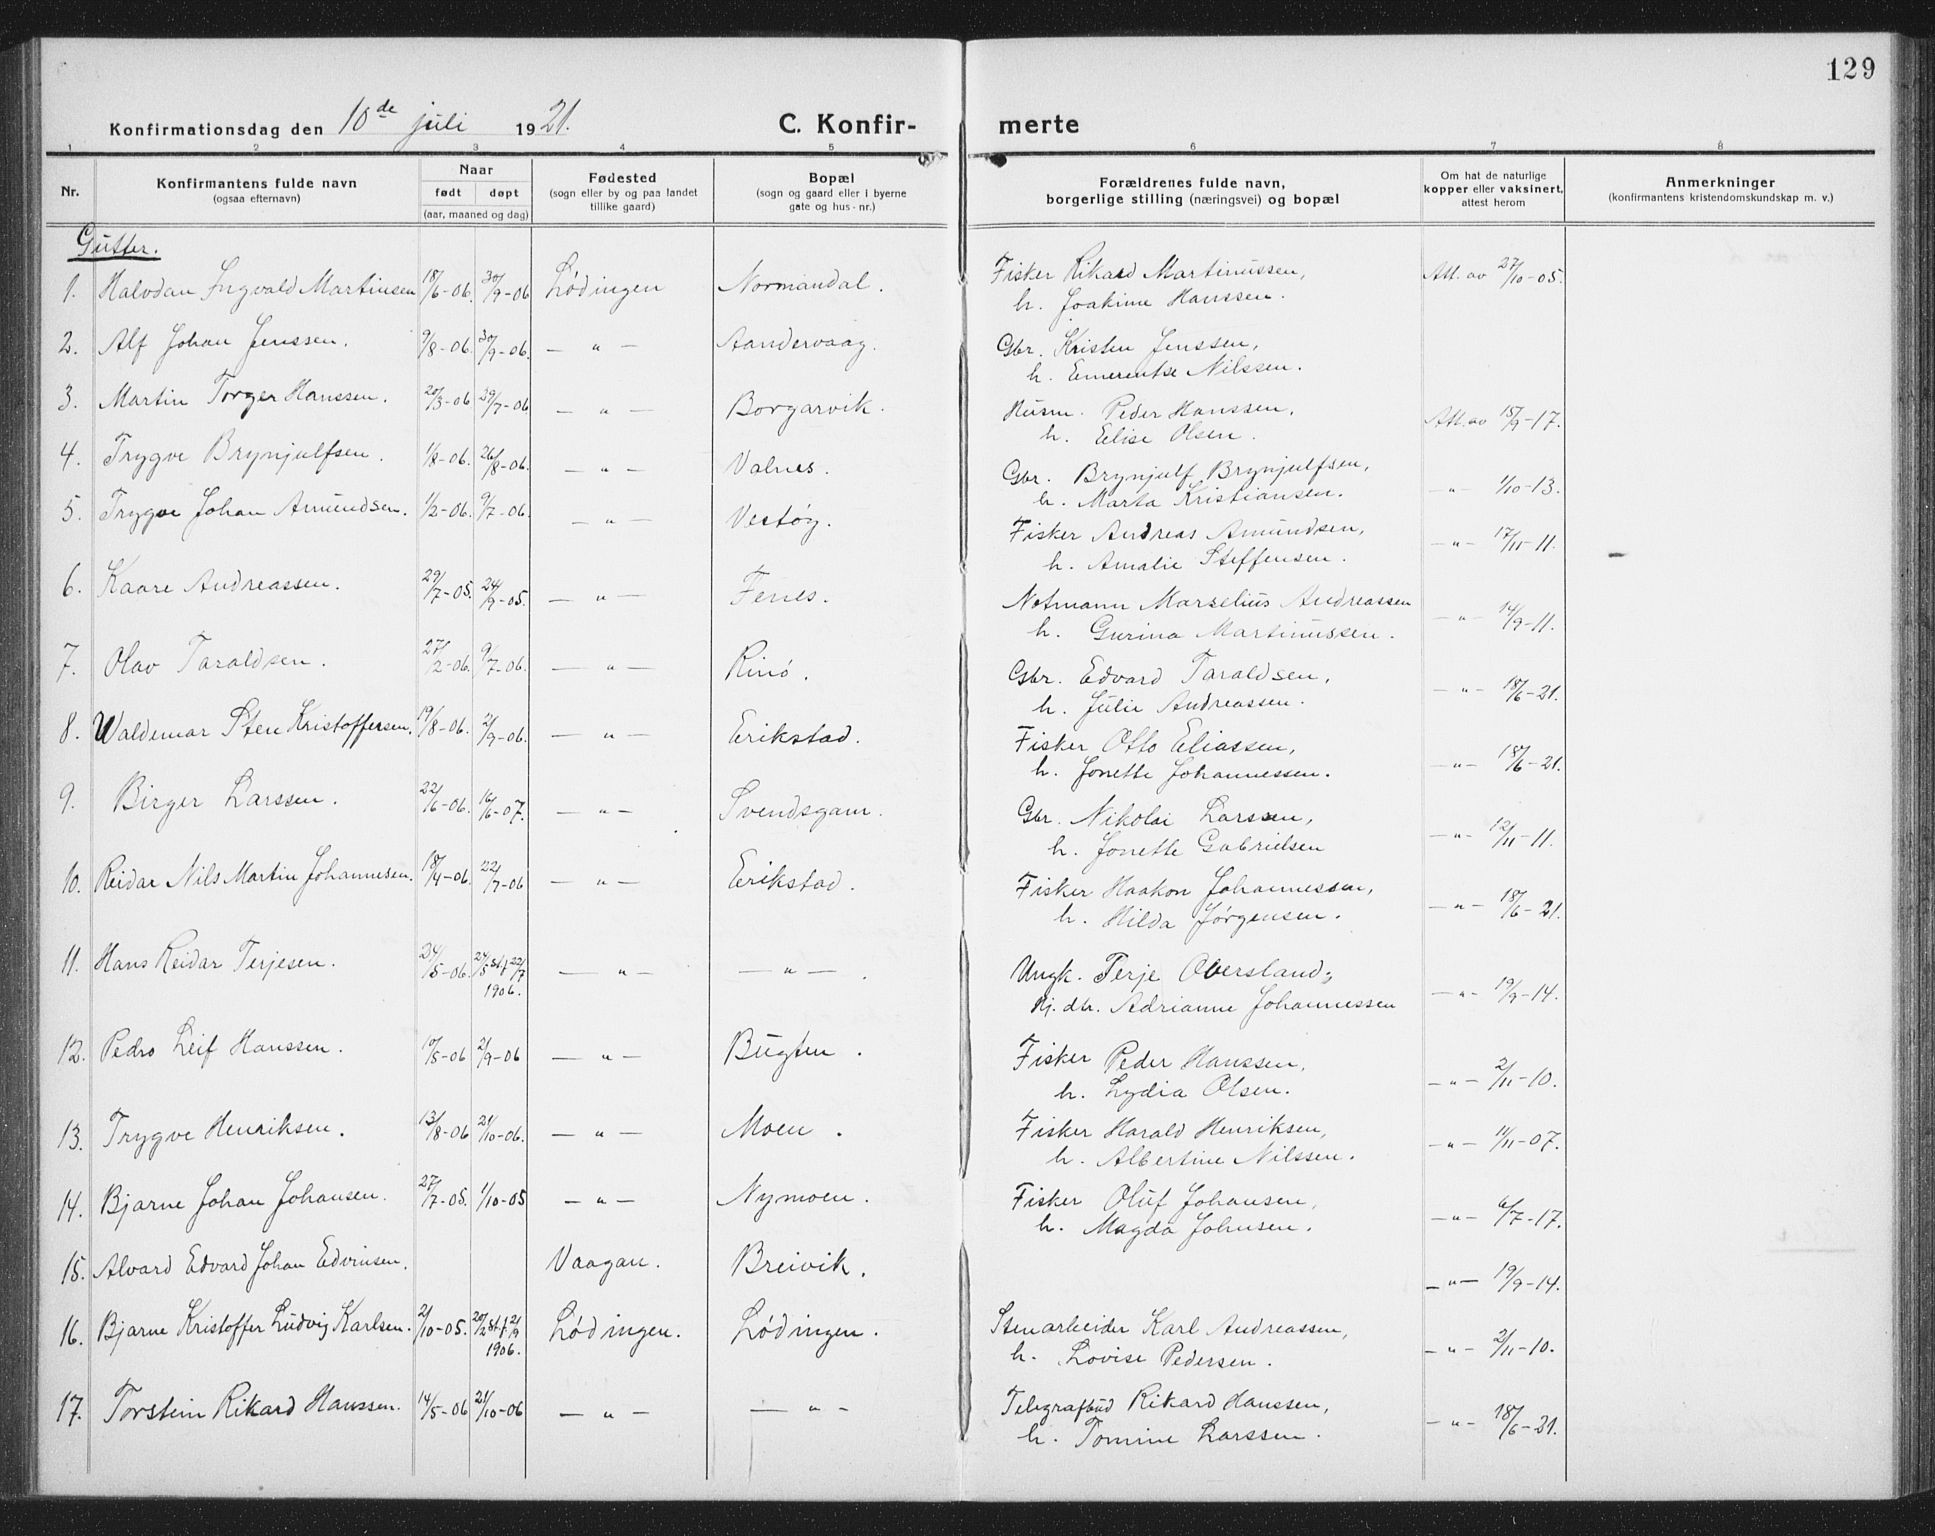 129
Konfirmationsdag den 10de juli 1921. C. Konfir- merte
1 2 3 4 5 6 7 8
Nr. Konfirmantens fulde navn (ogsaa efternavn) Naar født døpt (aar, maaned og dag) Fødested (sogn eller by og paa landet tillike gaard) Bopæl (sogn og gaard eller i byerne gate og hus-nr.) Forældrenes fulde navn, borgerlige stilling (næringsvei) og bopæl Om hat de naturlige kopper eller vaksinert, attest herom Anmerkninger (konfirmantens kristendomskundskap m. v.)
Gutter.
1. Halvdan Ingvald Martinsen 18/6-06. 30/9-06 Lødingen Normandal. Fisker Rikard Martinussen, Att. av 27/10-05.
h. Joakime Hanssen.
2. Alf Johan Jenssen. 9/8-06. 30/9-06. — " — Aandervaag. Gbr. Kristen Jenssen,
h. Emerentse Nilssen.
3. Martin Torger Hanssen. 20/3-06 29/7-06 — " — Borgarvik. Husm. Peder Hanssen, Att. av 15/9-17.
h. Elise Olsen.
4. Trygve Brynjulfsen. 1/8-06. 26/8-06. — " — Valnes. Gbr. Brynjulf Brynjulfsen, — " — 1/10-13.
h. Marta Kristiansen.
5. Trygve Johan Amundsen. 1/2-06. 9/7-06. — " — Vestøy. Fisker Andreas Amundsen, — " — 17/11-11.
h. Amalie Steffensen.
6. Kaare Andreassen. 29/7-05. 24/9-05. — " — Fenes. Notmann Marselius Andreassen — " — 14/9-11.
h. Gurina Martinussen.
7. Olav Taraldsen. 27/2-06. 9/7-06. — " — Rinø. Gbr. Edvard Taraldsen, — " — 18/6-21.
h. Julie Andreassen.
8. Waldemar Sten Kristoffersen. 19/8-06. 2/9-06. — " — Erikstad. Fisker Otto Eliassen, — " — 18/6-21.
h. Jonette Johannessen.
9. Birger Larssen. 22/6-06. 16/6-07. — " — Svendsgam. Gbr. Nikolai Larssen, — " — 12/11-11.
h. Jonette Gabrielsen
10. Reidar Nils Martin Johannesen. 18/4-06. 22/7-06 — " — Erikstad. Fisker Haakon Johannessen, — " — 18/6-21.
h. Hilda Jørgensen.
11. Hans Reidar Terjesen. 24/5-06. 24/5 st.f 22/7 1906. — " — — " — . Ungk. Terje Oversland, — " — 19/9-14.
Pj. dtr. Adrianne Johannessen
12. Pedro Leif Hanssen. 10/5-06 2/9-06 — " — Bugten. Fisker Peder Hanssen, — " — 2/11-10.
h. Lydia Olsen.
13. Trygve Henriksen. 13/8-06 21/10-06. — " — Moen. Fisker Harald Henriksen, — " — 11/11-07.
h. Albertine Nilssen.
14. Bjarne Johan Johansen. 27/7-05. 1/10-05 — " — Nymoen. Fisker Oluf Johansen, — " — 6/7-17.
h. Magda Johnsen.
15. Alvard Edvard Johan Edvinsen. Vaagan. Breivik. — " — 19/9-14.
16. Bjarne Kristoffer Ludvig Karlsen. 2/10-05. 20/2 st.f 2/9 1906. Lødingen. Lødingen. Stenarbeider Karl Andreassen, — " — 2/11-10.
h. Lovise Pedersen.
17. Torstein Rikard Hanssen. 14/5-06 21/10-06 — " — — " — Telegrafbud Rikard Hanssen, — " — 18/6-21.
h. Tomine Larssen.